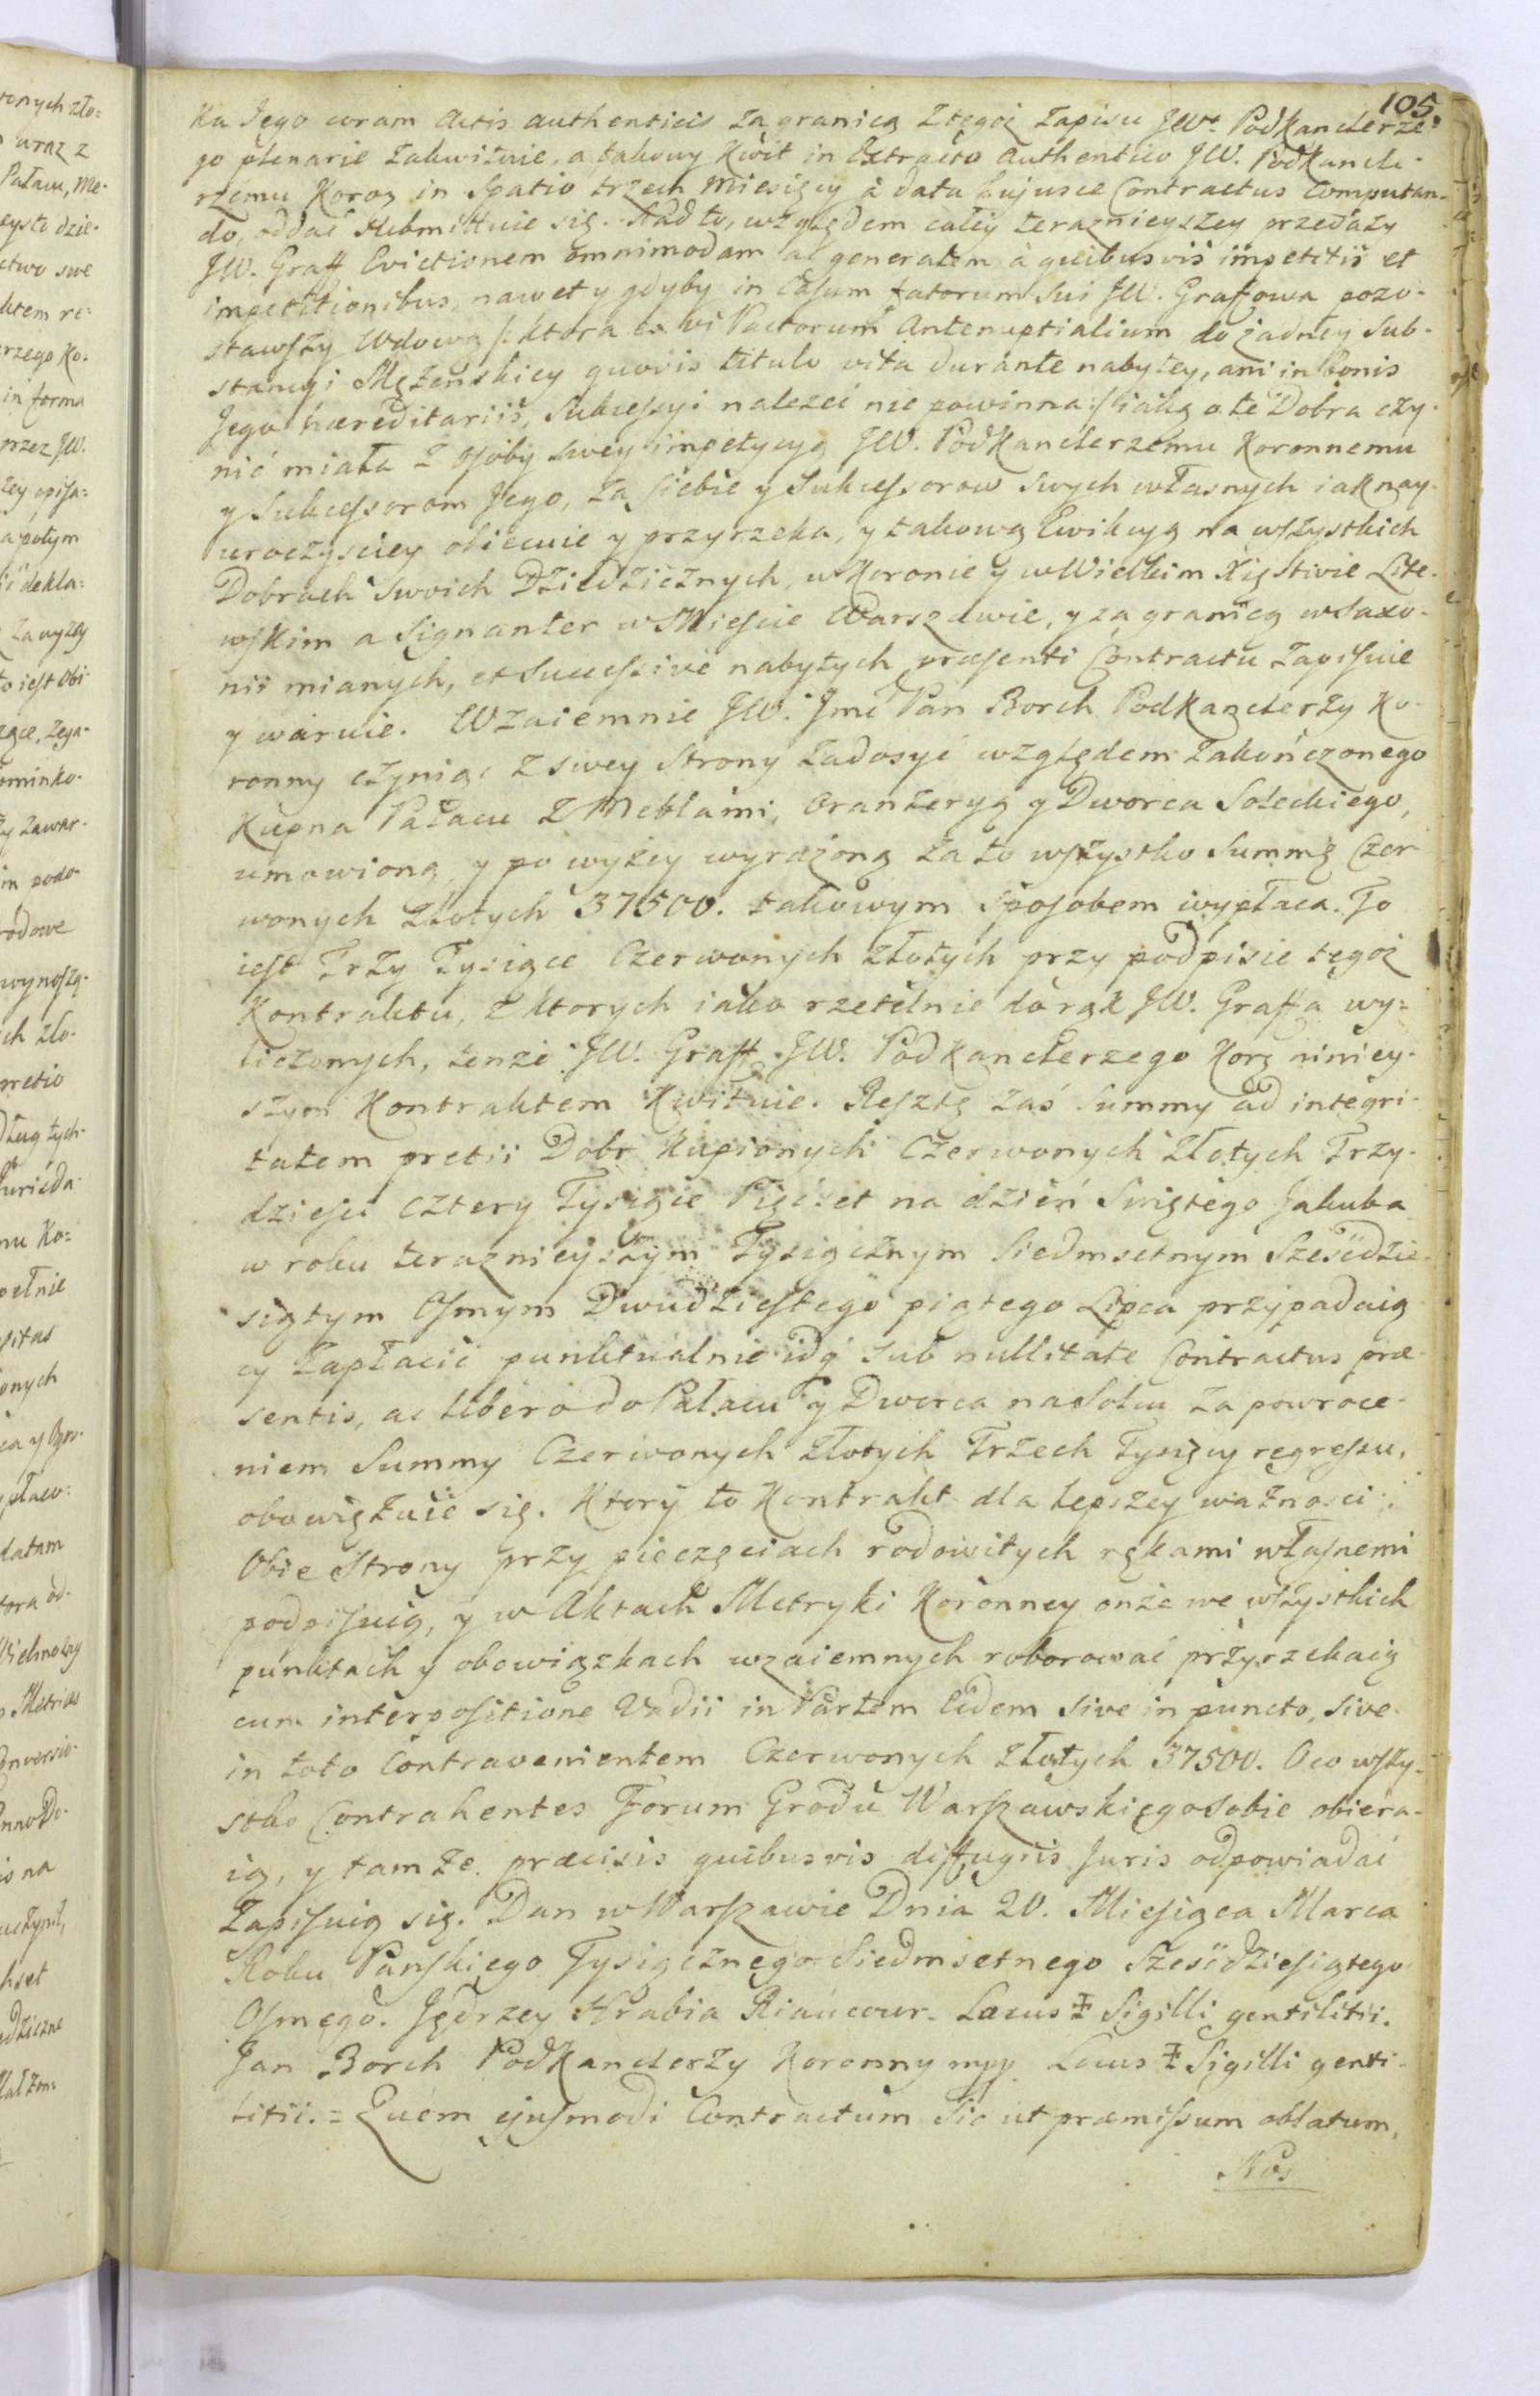 105.
ka Jego coram Actis authenticis za granicą z tegóż zapisu JWo Podkanclerze-
go plenarie zakwituie, a takowy Kwit in Extractu Authentico JW. Podkancle-
rzemu Koron in Spatio trzech Miesięcy à data hujusce Contractus Computan-
do, oddać submittuie się. Nad to, względem całey teraznieyszey przedaży
JW. Graff Evictionem omnimodam ac generalem à quibusvis impetitiis et
impetitionibus, nawet y gdyby in Casum fatorum sui JW. Grafowa pozo-
stawszy Wdową /: ktora ex vi Pactorum Antenuptialium do żadney Sub-
stancyi Mężeńskiey quovis titulo vita durante nabytey, ani in bonis
Jego hæreditariis, Sukcessyi należeć nie powinna :/ iaką o te Dobra czy-
nić miała z osoby swey impetycyą JW. Podkanclerzemu Koronnemu
y Sukcessorom Jego, za siebie y Sukcessorow swych własnych iak nay-
uroczyściey obiecuie y przyrzeka, y takową Ewikcyą na wszystkich
Dobrach swoich Dziedzicznych, w Koronie y w Wielkim Xięstwie Lite-
wskim a Signanter w Mieście Warszawie, y za granicą w Saxo-
nii mianych, et Successive nabytych præsenti Contractu zapisuie
y waruie. Wzaiemnie JW. Jmć Pan Borch Podkanclerzy Ko-
ronny czyniąc z swey strony zadosyć względem zakończonego
Kupna Pałacu z Meblami, Oranżeryą y Dworca Soleckiego,
umowioną, y po wyżey wyrażoną za to wszystko Summę Czer-
wonych Złotych 37500. takowym sposobem wypłaca. To
iest Trzy Tysiące Czerwonych złotych przy podpisie tegoż
Kontraktu, z ktorych iako rzetelnie do rąk JW. Graffa wy-
liczonych, tenże JW. Graff JW. Podkanclerzego Kor: niniey-
szym Kontraktem Kwituie. Resztę zaś Summy ad integri-
tatem pretii Dobr Kupionych Czerwonych Złotych Trzy-
dzieści cztery Tysiące Pięćset na dzień Świętego Jakuba
w roku teraznieyszym Tysiącznym Siedmsetnym Sześćdzie-
siątym Osmym Dwudziestego piątego Lipca przypadaią-
cy zapłacić punktualnie idq sub nullitate Contractus præ-
sentis, ac libero do Pałacu y Dworca na Solcu za powroce-
niem Summy Czerwonych złotych Trzech Tysięcy regressu,
obowiązuie się. Ktory to Kontrakt dla lepszey ważności
Obie Strony przy pieczęciach rodowitych rękami własnemi
podpisuią, y w Aktach Metryki Koronney onże we wszystkich
punktach y obowiązkach wzaiemnych roborować przyrzekaią
cum interpositione Vadii in Partem Eidem sive in puncto, sive
in toto Contravenientem Czerwonych złotych 37500. Oco wszy-
stko Contrahentes Forum Grodu Warszawskiego sobie obiera-
ią, y tamże præcisis quibusvis diffugiis Juris odpowiadać
zapisuią się. Dan w Warszawie Dnia 20. Miesiąca Marca
Roku Pańskiego Tysiącznego Siedmsetnego Sześćdziesiątego
Osmego. Jędrzey Hrabia Riaucour. Locus ‡ Sigilli gentilitii.
Jan Borch Podkanclerzy Koronny mpp. Locus ‡ Sigilli genti-
litii. = Quem ejusmodi Contractum sic ut præmissum oblatum,
Nos